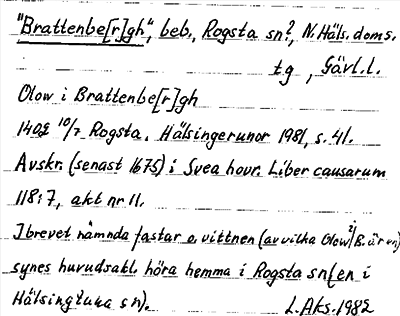 "Brattenbe[r]gh", beb., Rogsta sn?, N. Häls. doms.
tg, Gävl. l.
Olow i Brattenbe[r]gh
1402 10/7 Rogsta. Hälsingerunor 1981, s. 41.
Avskr. (senast 1675) i Svea hovr. Liber causarum
118:7, akt nr 11.
I brevet nämnda fastar o. vittnen (av vilka Olow i B. är en)
synes huvudsakl. höra hemma i Rogsta sn (en i
Hälsingtuna sn). L. Aks. 1982